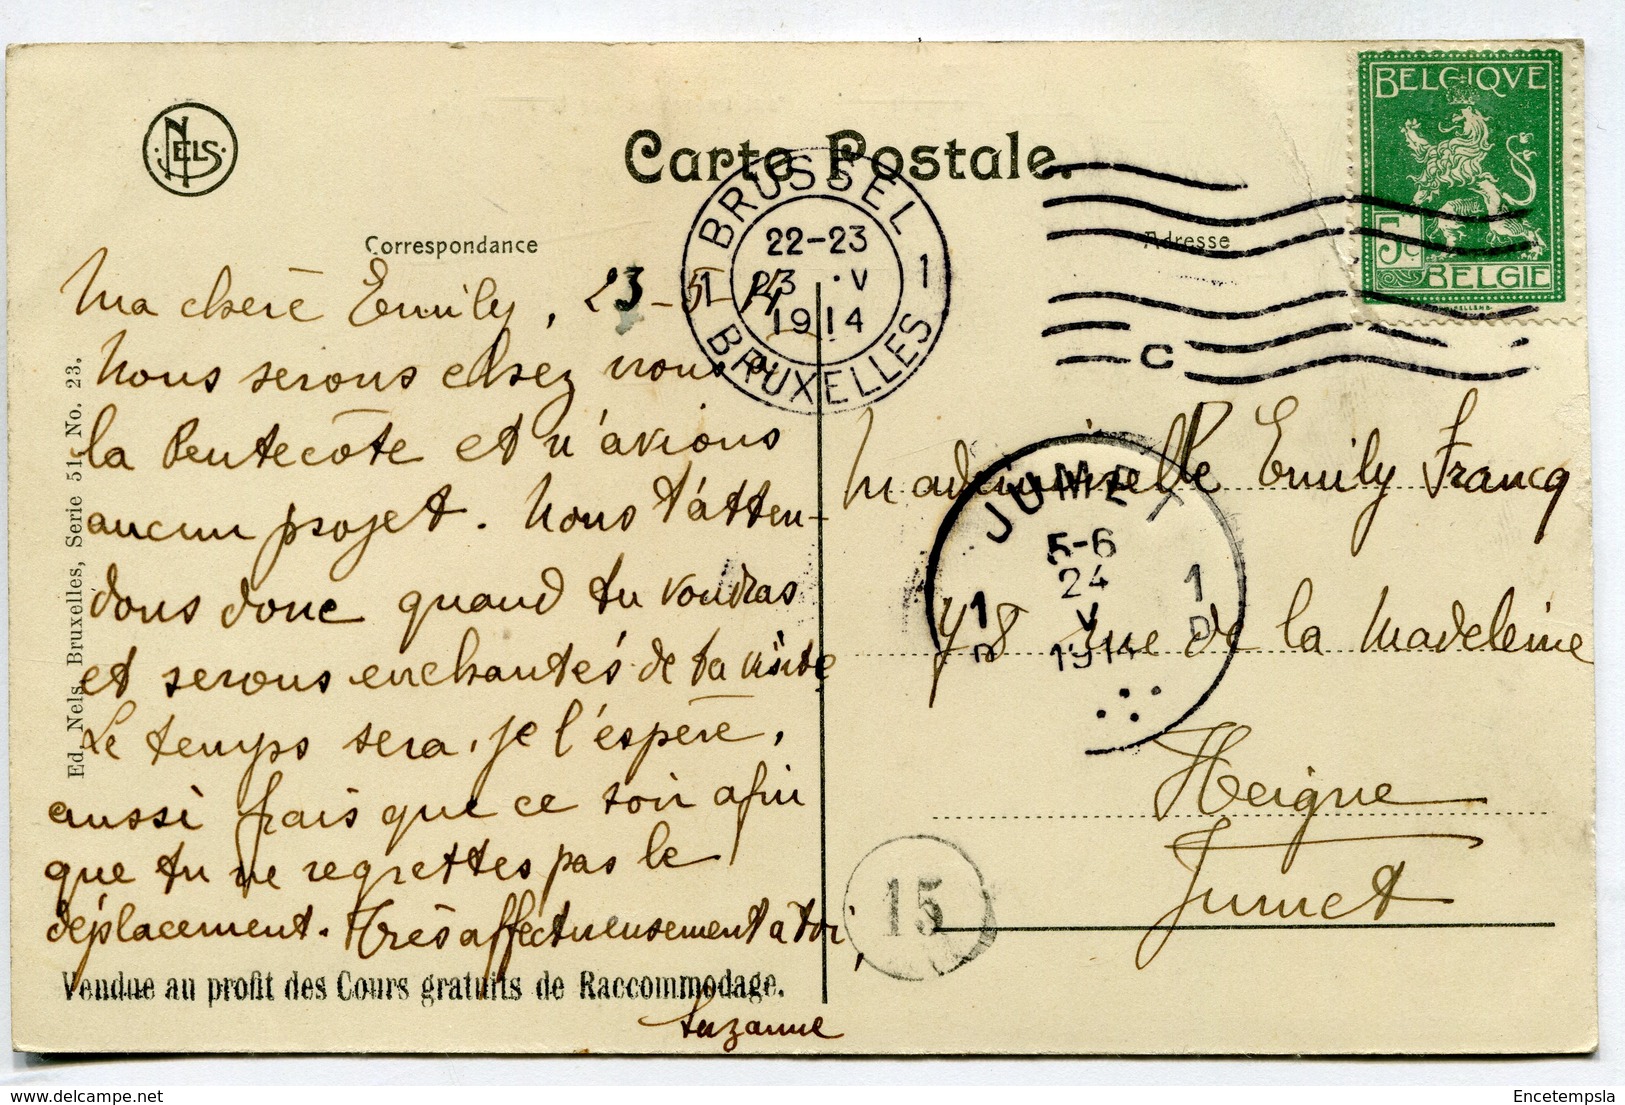 NELS
Carte Postale.
BELGIQVE
5c
BELGIE
BRUSSEL
22-23
23 · V
1914
1 1
BRUXELLES
C
Correspondance
Adresse
Ma chère Emily, 23-5-14
Nous serons chez nous à
la Pentecôte et n'avions
aucun projet. Nous t'atten-
dons donc quand tu voudras
et serons enchantés de ta visite
Le temps sera, je l'espère,
aussi frais que ce soir afin
que tu ne regrettes pas le
déplacement. Très affectueusement à toi,
Suzanne
Vendue au profit des Cours gratuits de Raccommodage.
Ed. Nels, Bruxelles, Serie 51 No. 23.
Mademoiselle Emily Francq
78 rue de la Madeleine
Heigne
Jumet
JUMET
5-6
24
V
1914
1 1
15
Encetempsla